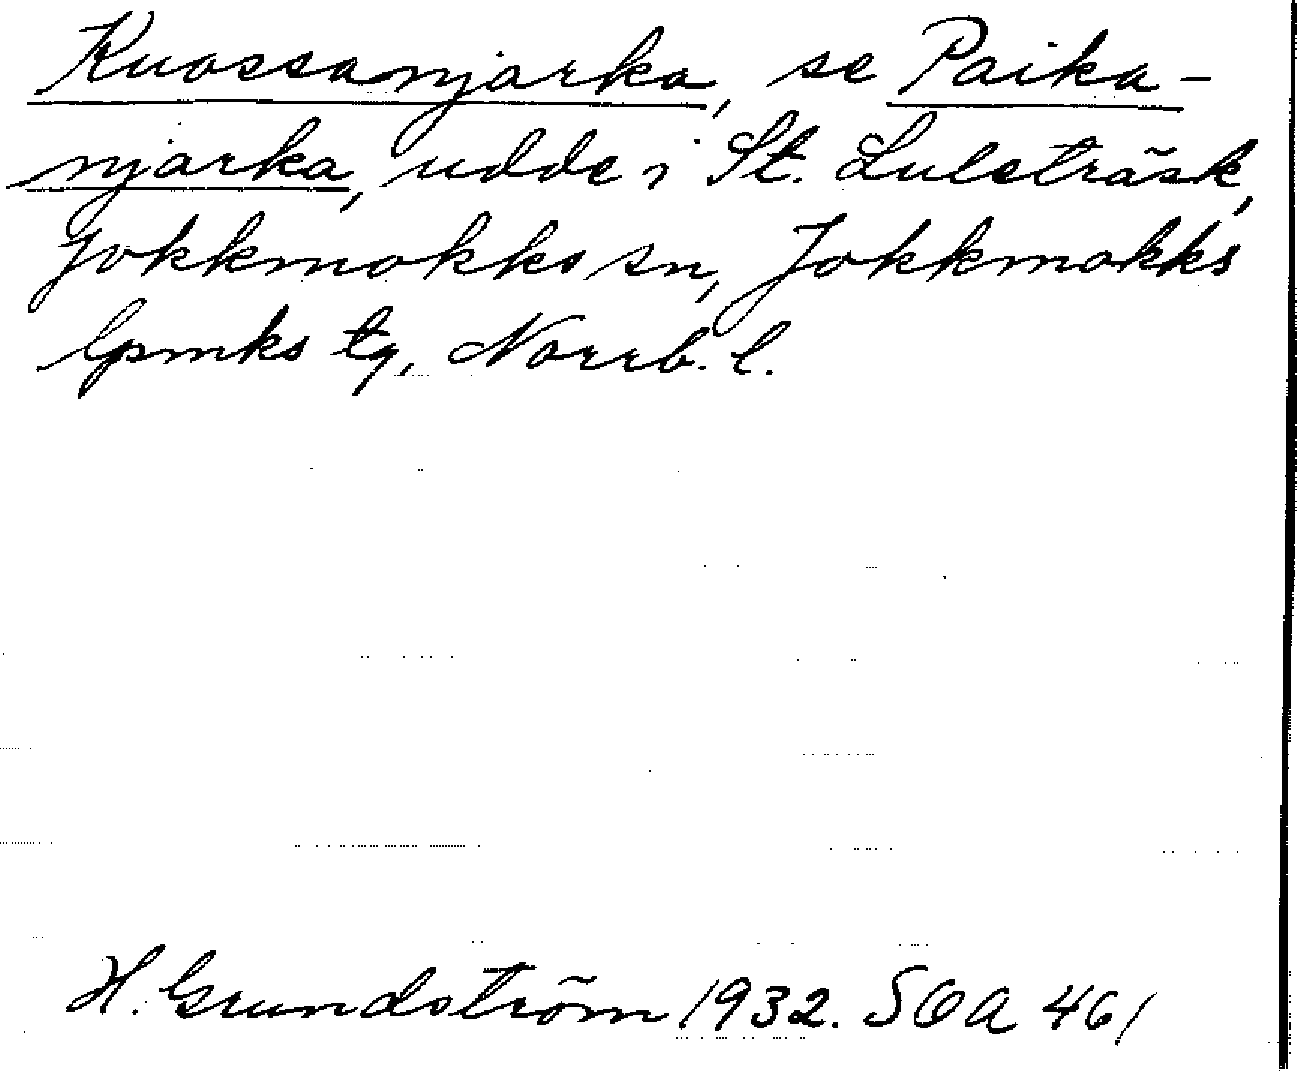 Kuossanjarka, se Paika-
njarka, udde i St. Luleträsk,
Jokkmokks sn, Jokkmokks
lpmks tg, Norrb. l.
H. Grundström 1932. SOA 461